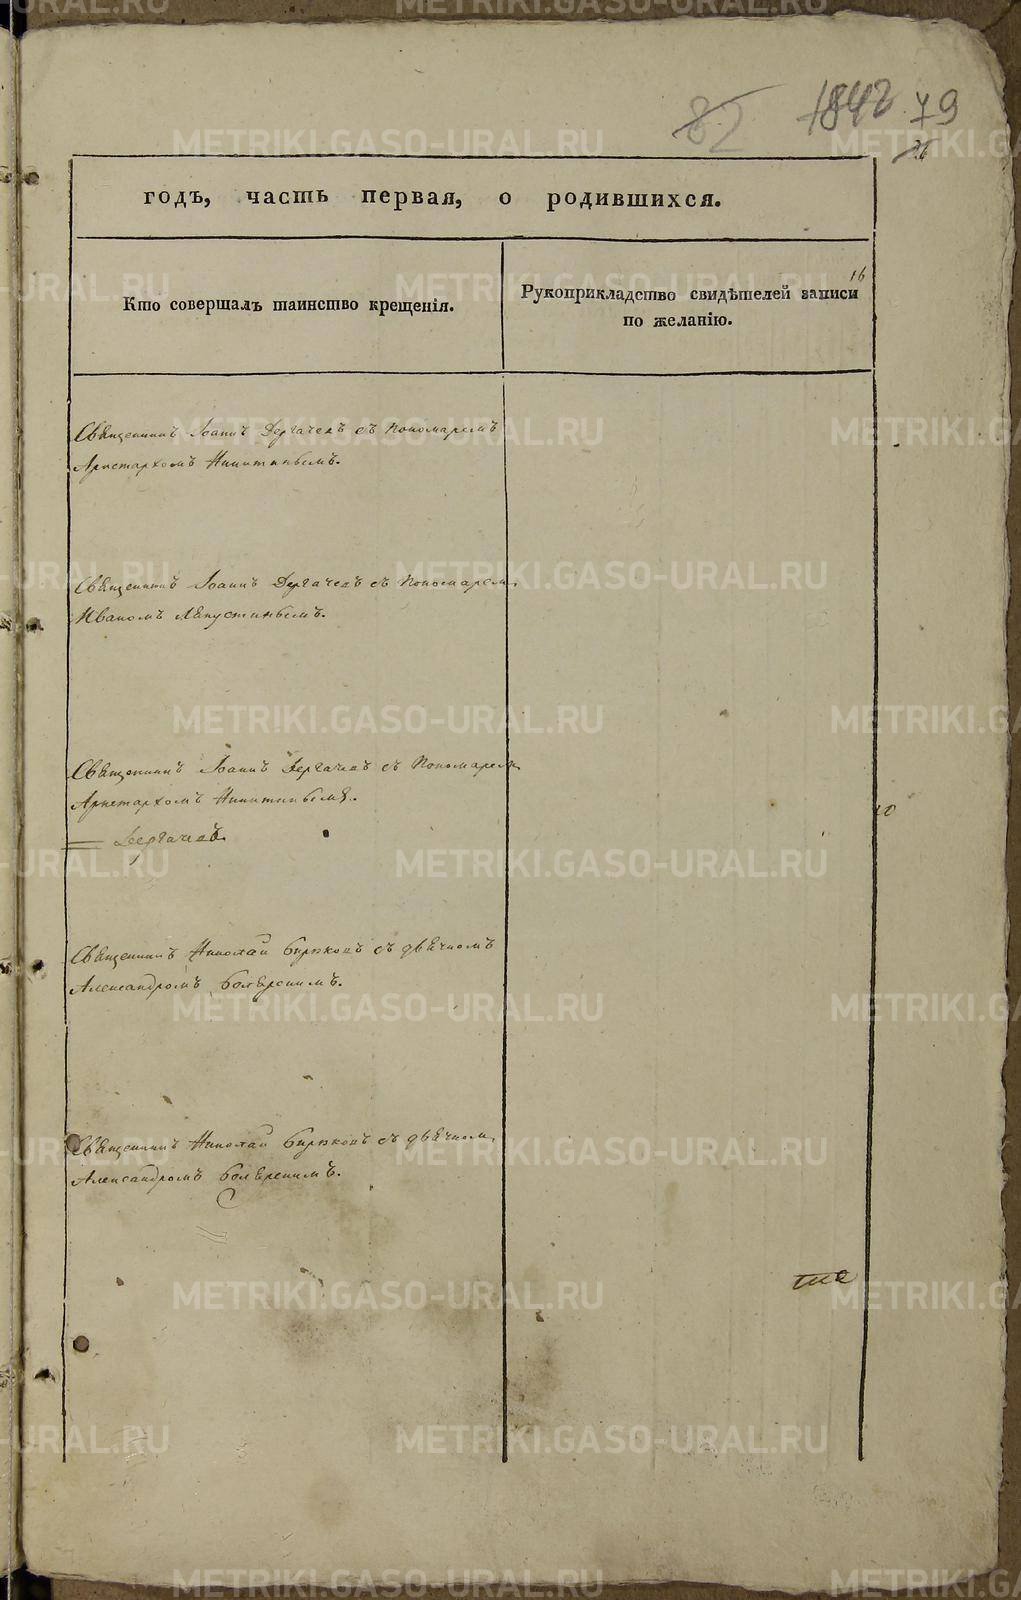 82 1842 79
26
годъ, часть первая, о родившихся.
Кто совершалъ таинство крещенія.
16
Рукоприкладство свидѣтелей записи
по желанію.
Священникъ Іоаннъ Дергачевъ съ Пономаремъ
Аристархомъ Никитинымъ.
Священникъ Іоаннъ Дергачевъ съ Пономаремъ
Иваномъ
Священникъ Іоаннъ Дергачевъ съ Пономаремъ
Аристархомъ Никитинымъ.
Дергачевъ.
Священникъ Николай Бирюковъ съ дьячкомъ
Александромъ
Священникъ Николай Бирюковъ съ дьячкомъ
Александромъ
METRIKI.GASO-URAL.RU